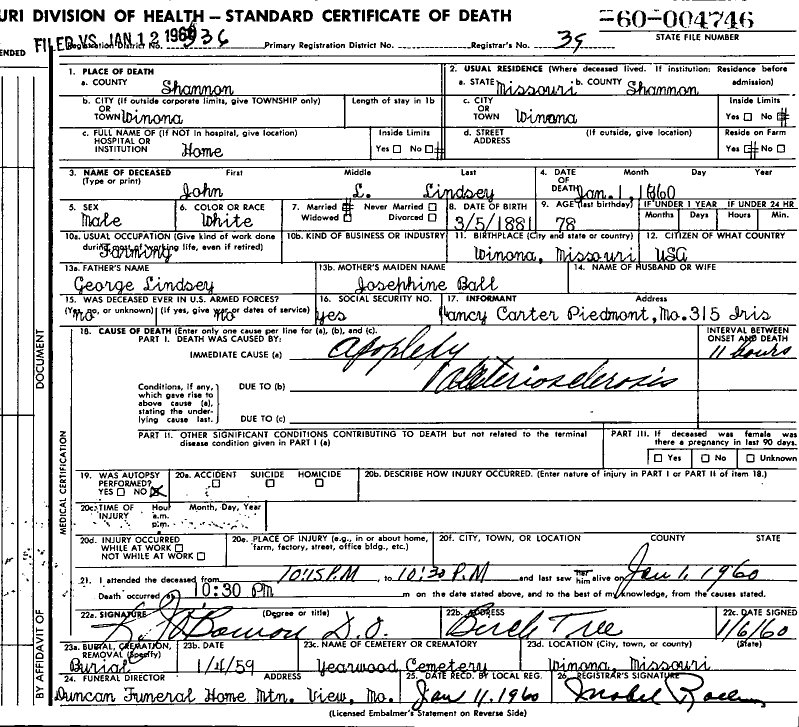 URI DIVISION OF HEALTH — STANDARD CERTIFICATE OF DEATH
-60-004746
STATE FILE NUMBER
ENDED FILED VS. JAN 12 1960 Registration District No. 336 Primary Registration District No. Registrar's No. 39
1. PLACE OF DEATH
a. COUNTY Shannon
2. USUAL RESIDENCE (Where deceased lived. If institution: Residence before admission)
a. STATE Missouri b. COUNTY Shannon
b. CITY (If outside corporate limits, give TOWNSHIP only) OR TOWN Winona
Length of stay in 1b
c. CITY OR TOWN Winona
Inside Limits
Yes □ No
c. FULL NAME OF (If NOT in hospital, give location) HOSPITAL OR INSTITUTION Home
Inside Limits
Yes □ No
d. STREET ADDRESS (If outside, give location)
Reside on Farm
Yes No □
3. NAME OF DECEASED (Type or print)
First Middle Last
John L. Lindsey
4. DATE OF DEATH Month Day Year
Jan. 1, 1960
5. SEX
Male
6. COLOR OR RACE
White
7. Married Never Married □
Widowed Divorced □
8. DATE OF BIRTH
3/5/1881
9. AGE (last birthday)
78
IF UNDER 1 YEAR IF UNDER 24 HR
Months Days Hours Min.
10a. USUAL OCCUPATION (Give kind of work done during most of working life, even if retired)
Farming
10b. KIND OF BUSINESS OR INDUSTRY
11. BIRTHPLACE (City and state or country)
Winona, Missouri
12. CITIZEN OF WHAT COUNTRY
USA
13a. FATHER'S NAME
George Lindsey
13b. MOTHER'S MAIDEN NAME
Josephine Ball
14. NAME OF HUSBAND OR WIFE
15. WAS DECEASED EVER IN U.S. ARMED FORCES?
(Yes, no, or unknown) (If yes, give war or dates of service)
no no
16. SOCIAL SECURITY NO.
yes
17. INFORMANT Address
Nancy Carter Piedmont, Mo. 315 Iris
18. CAUSE OF DEATH (Enter only one cause per line for (a), (b), and (c).
PART I. DEATH WAS CAUSED BY:
IMMEDIATE CAUSE (a) Apoplexy
INTERVAL BETWEEN ONSET AND DEATH
11 hours
Conditions, if any, which gave rise to above cause (a), stating the underlying cause last.
DUE TO (b) Arteriosclerosis
DUE TO (c)
PART II. OTHER SIGNIFICANT CONDITIONS CONTRIBUTING TO DEATH but not related to the terminal disease condition given in PART I (a)
PART III. If deceased was female was there a pregnancy in last 90 days.
□ Yes □ No □ Unknown
19. WAS AUTOPSY PERFORMED?
YES □ NO ☒
20a. ACCIDENT SUICIDE HOMICIDE
□ □ □
20b. DESCRIBE HOW INJURY OCCURRED. (Enter nature of injury in PART I or PART II of item 18.)
20c. TIME OF INJURY Hour Month, Day, Year
a.m.
p.m.
20d. INJURY OCCURRED
WHILE AT WORK □
NOT WHILE AT WORK □
20e. PLACE OF INJURY (e.g., in or about home, farm, factory, street, office bldg., etc.)
20f. CITY, TOWN, OR LOCATION COUNTY STATE
21. I attended the deceased from 10:15 P.M to 10:30 P.M and last saw her him alive on Jan 1, 1960
Death occurred at 10:30 PM m on the date stated above, and to the best of my knowledge, from the causes stated.
22a. SIGNATURE (Degree or title)
D.O.
22b. ADDRESS
Birch Tree
22c. DATE SIGNED
1/6/60
23a. BURIAL, CREMATION, REMOVAL (Specify)
Burial
23b. DATE
1/4/59
23c. NAME OF CEMETERY OR CREMATORY
Yearwood Cemetery
23d. LOCATION (City, town, or county) (State)
Winona, Missouri
24. FUNERAL DIRECTOR ADDRESS
Duncan Funeral Home Mtn. View, Mo.
25. DATE RECD. BY LOCAL REG.
Jan 11, 1960
26. REGISTRAR'S SIGNATURE
Mabel
(Licensed Embalmer's Statement on Reverse Side)
DOCUMENT
MEDICAL CERTIFICATION
BY AFFIDAVIT OF